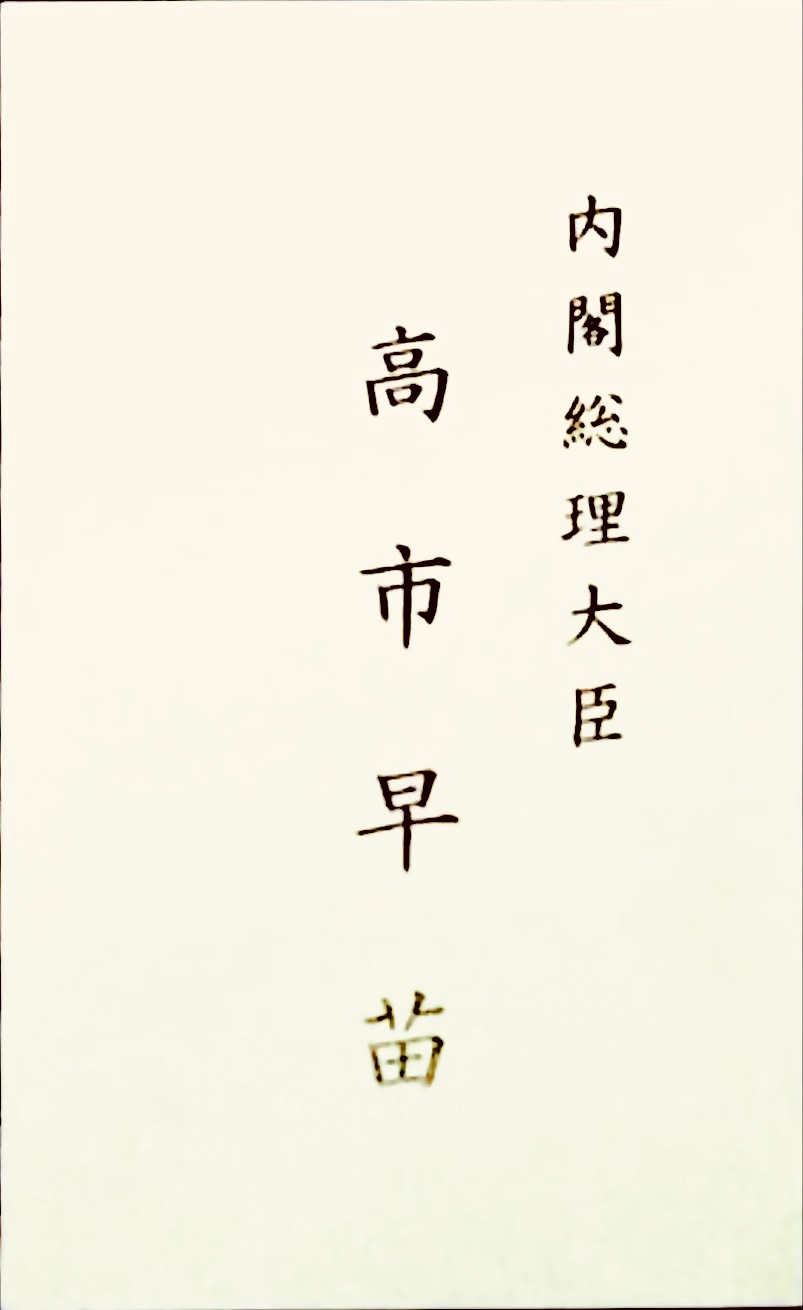 内閣総理大臣
高市早苗